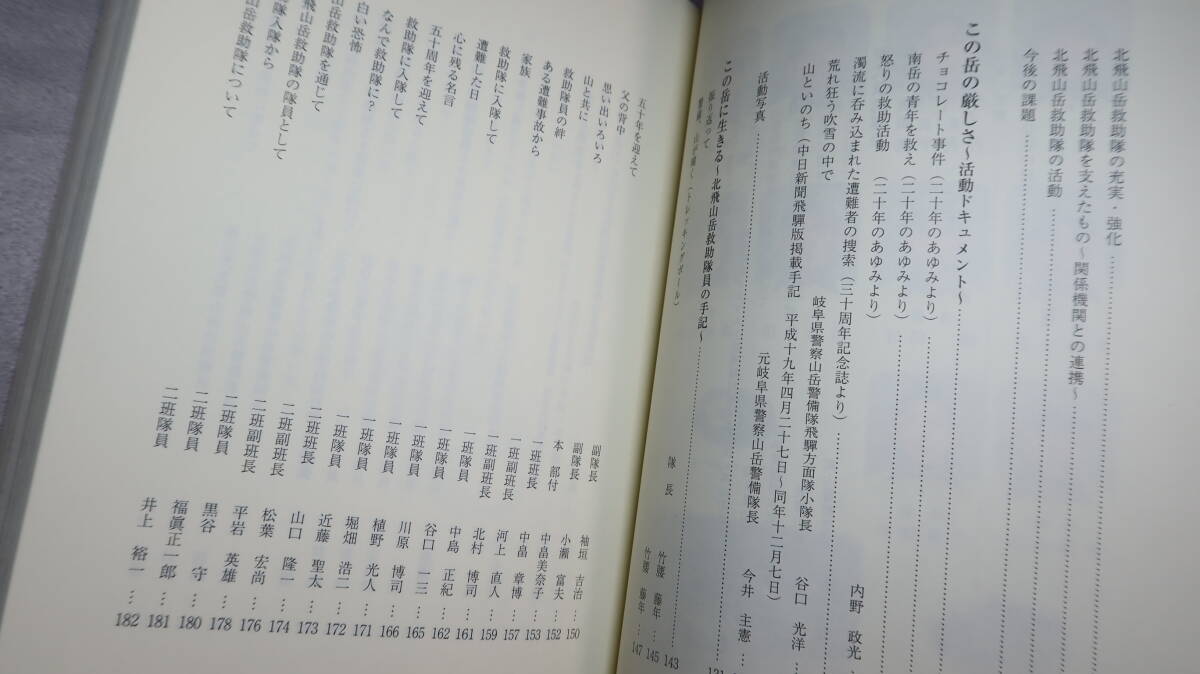 北飛山岳救助隊の充実・強化
北飛山岳救助隊を支えたもの～関係機関との連携～
北飛山岳救助隊の活動
今後の課題
この岳の厳しさ～活動ドキュメント～
チョコレート事件（二十年のあゆみより）
南岳の青年を救え（二十年のあゆみより）
怒りの救助活動　（二十年のあゆみより）
濁流に呑み込まれた遭難者の捜索（三十周年記念誌より）　内野　政光
荒れ狂う吹雪の中で　岐阜県警察山岳警備隊飛騨方面隊小隊長　谷口　光洋
山といのち（中日新聞飛騨版掲載手記　平成十九年四月二十七日～同年十二月七日）
元岐阜県警察山岳警備隊長　今井　主憲
活動写真　131
この岳に生きる～北飛山岳救助隊員の手記～　143
振り返って　隊長　竹腰　藤年　145
（トレイキングポール）　竹腰　藤年　147
五十年を迎えて　副隊長　袖垣　吉治　150
父の背中　副隊長　小瀬　富夫　152
思い出いろいろ　本部付　中畠美奈子　153
山と共に　一班班長　中畠　章博　157
救助隊員の絆　一班副班長　河上　直人　159
ある遭難事故から　一班副班長　北村　博司　161
家族　一班隊員　中島　正紀　162
救助隊に入隊して　一班隊員　谷口　一三　165
遭難した日　一班隊員　川原　博司　166
心に残る名言　一班隊員　植野　光人　171
五十周年を迎えて　一班隊員　堀畑　浩二　172
救助隊に入隊して　二班班長　近藤　聖太　173
なんで救助隊に？　二班副班長　山口　隆一　174
白い恐怖　二班副班長　松葉　宏尚　176
山岳救助隊を通じて　二班隊員　平岩　英雄　178
飛山岳救助隊の隊員として　二班隊員　黒谷　守　180
隊入隊から　二班隊員　福眞正一郎　181
山岳救助隊について　二班隊員　井上　裕一　182